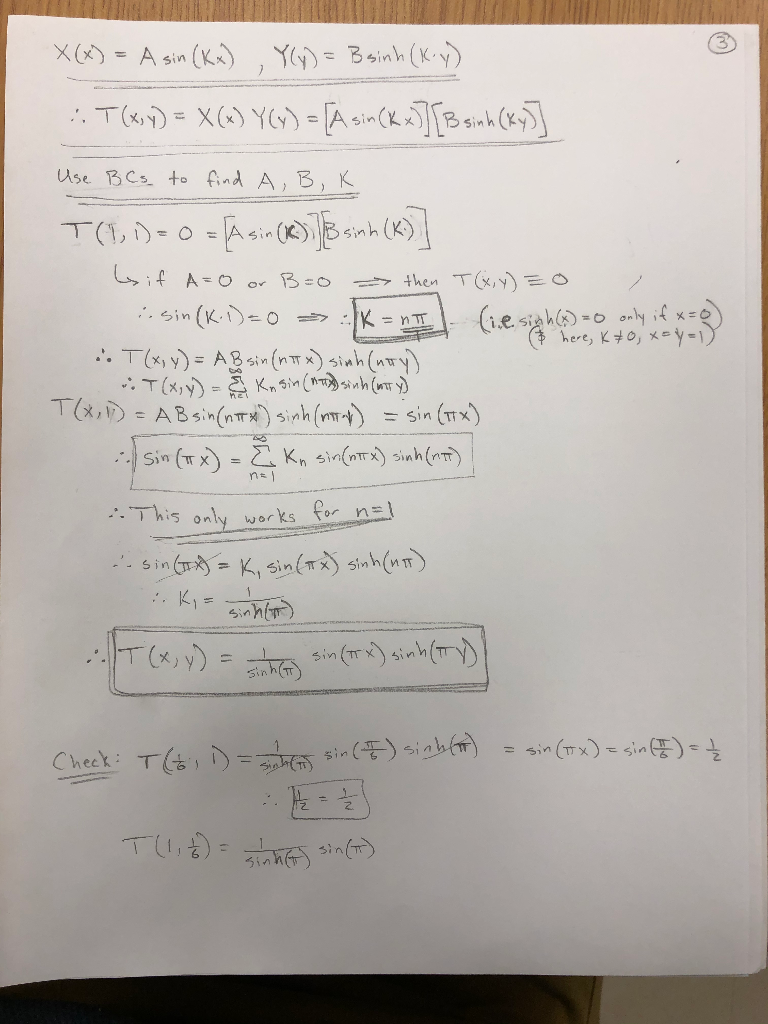 3
X(x) = A sin(Kx) , Y(y) = B sinh(K·y)
∴ T(x,y) = X(x) Y(y) = [A sin(Kx)][B sinh(Ky)]
Use BCs to find A, B, K
T(1,1) = 0 = [A sin(K)][B sinh(K)]
↳ if A=0 or B=0 ⟹ then T(x,y) ≡ 0
∴ sin(K·1) = 0 ⟹ ∴ K = nπ (i.e. sinh(x) = 0 only if x=0)
(& here, K≠0, x=y=1)
∴ T(x,y) = AB sin(nπx) sinh(nπy)
∴ T(x,y) = ∑_{n=1}^{∞} Kn sin(nπx) sinh(nπy)
T(x,1) = AB sin(nπx) sinh(nπy) = sin(πx)
∴ sin(πx) = ∑_{n=1}^{∞} Kn sin(nπx) sinh(nπ)
∴ This only works for n=1
∴ sin(πx) = K₁ sin(πx) sinh(nπ)
∴ K₁ = 1/sinh(π)
∴ T(x,y) = 1/sinh(π) sin(πx) sinh(πy)
Check: T(1/6, 1) = 1/sinh(π) sin(π/6) sinh(π) = sin(πx) = sin(π/6) = 1/2
∴ 1/2 = 1/2
T(1, 1/6) = 1/sinh(π) sin(π)